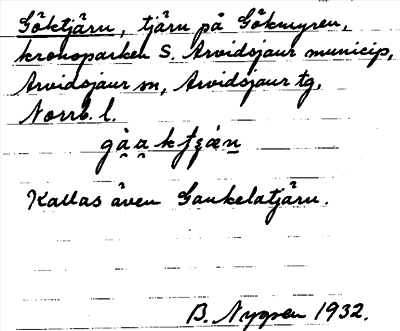 Göktjärn, tjärn på Gökmyren,
kronoparken S. Arvidsjaur municip,
Arvidsjaur sn, Arvidsjaur tg,
Norrb. l.
Kallas även Gaukelatjärn.
B. Nygren 1932.